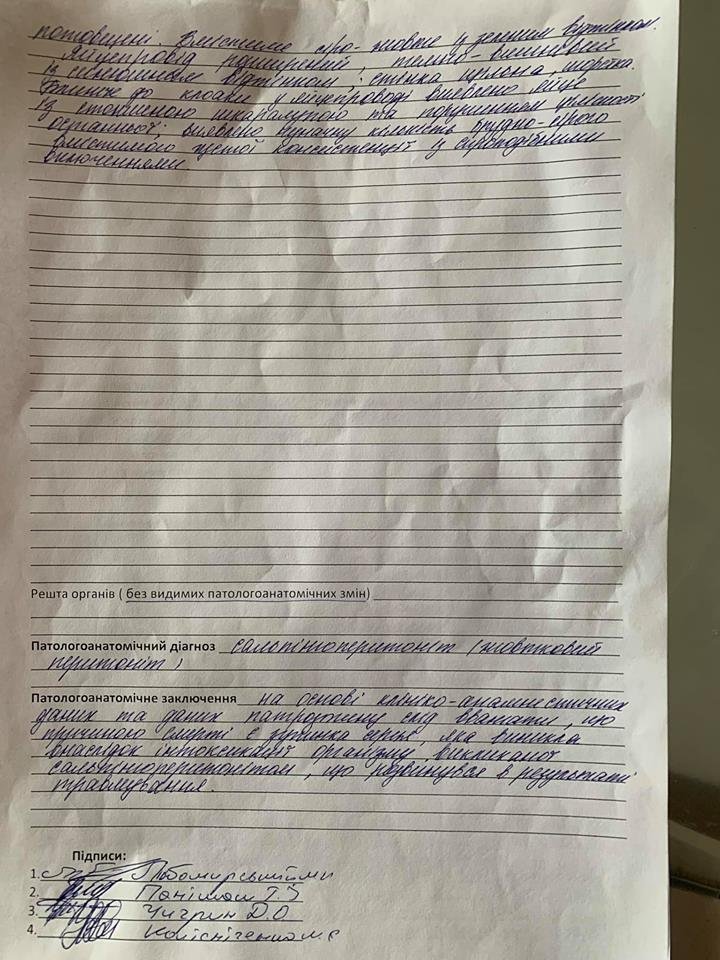 потовщені. Вмістиме сіро-жовте із зеленим відтінком.
Яйцепровід розширений, темно-вишневий
із синюшним відтінком; стінка щільна, шорстка.
Ближче до клоаки у яйцепроводі виявлено яйце
із стоншеною шкаралупою та порушенням цілісності
останньої; виявлено значну кількість брудно-сірого
вмістимого густої консистенції із сироподібними
включеннями.
Решта органів ( без видимих патологоанатомічних змін)
Патологоанатомічний діагноз сальпінгоперитоніт (жовтковий
перитоніт)
Патологоанатомічне заключення на основі клініко-анамнестичних
даних та даних патрозтину слід вважати, що
причиною смерті є зупинка серця, яка виникла
внаслідок інтоксикації організму, викликаної
сальпінгоперитонітом, що розвинувся в результаті
травмування.
Підписи:
1.
2.
3. Чигрин Д.О
4.